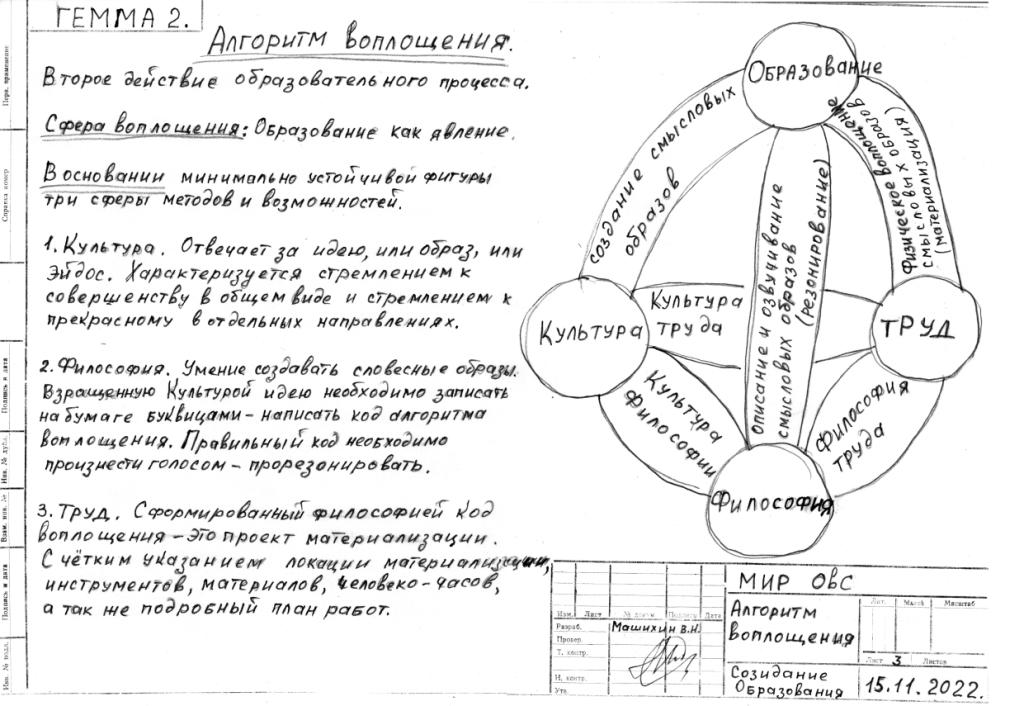 ГЕММА 2.
Алгоритм воплощения.
Второе действие образовательного процесса.
Сфера воплощения: Образование как явление.
В основании минимально устойчивой фигуры
три сферы методов и возможностей.
1. Культура. Отвечает за идею, или образ, или
Эйдос. Характеризуется стремлением к
совершенству в общем виде и стремлением к
прекрасному в отдельных направлениях.
2. Философия. Умение создавать словесные образы.
Взращенную Культурой идею необходимо записать
на бумаге буквицами – написать код алгоритма
воплощения. Правильный код необходимо
произнести голосом – прорезонировать.
3. Труд. Сформированный философией код
воплощения – это проект материализации.
С чётким указанием локации материализации,
инструментов, материалов, человеко-часов,
а так же подробный план работ.
Образование
создание смысловых
образов
описание и озвучивание
смысловых образов
(резонирование)
Физическое воплощение
смысловых образов
(материализация)
Культура
Культура
труда
ТРУД
Культура
Философии
Философия
труда
Философия
Перв. применение
Справка номер
Подпись и дата
Инв. № дубл.
Взам. инв. №
Подпись и дата
Инв. № подл.
Изм. Лист № докум. Подпись Дата
Разраб. Машихин В.Н.
Провер.
Т. контр.
Н. контр.
Утв.
МИР ОВС
Алгоритм
воплощения
Лит. Масса Масштаб
Лист 3 Листов
Созидание
Образования
15.11.2022.